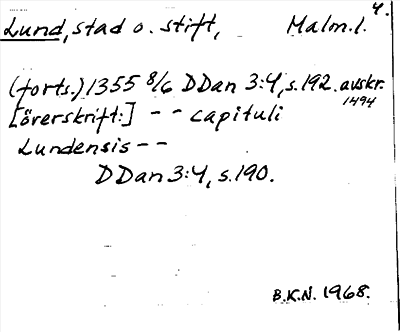 4.
Lund, stad o. stift, Malm.l.
(forts.) 1355 8/6 DDan 3:4, s.192. avskr. 1494
[överskrift:] - - capituli
Lundensis - -
DDan 3:4, s.190.
B.K.N. 1968.